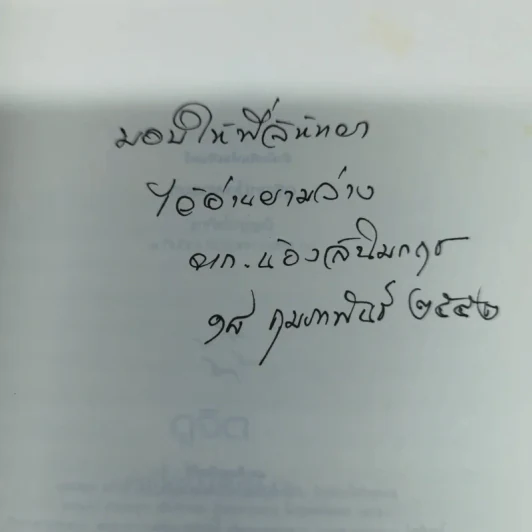 มอบให้พี่สันทยา
ไว้อ่านยามว่าง
จาก.น้อง
๑๘ กุมภาพันธ์ ๒๕๕๒